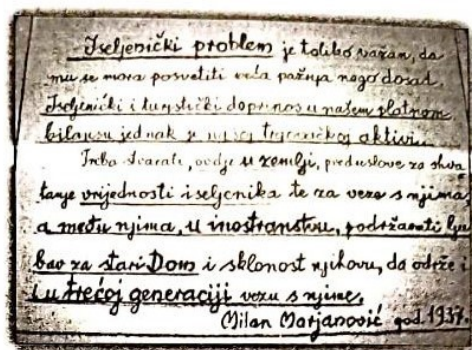 Iseljenički problem je toliko važan, da
mu se mora posvetiti veća pažnja nego dosad.
Iseljenički i turistički doprinos u našem platnom
bilansu jednak je našoj trgovačkoj aktivi.
Treba stvarati, ovdje u zemlji, preduslove za shva
tanje vrijednosti iseljenika te za veze s njima
a među njima, u inostranstvu, podržavati lju
bav za stari Dom i sklonost njihovu, da održe i
i u trećoj generaciji vezu s njime.
Milan Marjanović god. 1937.